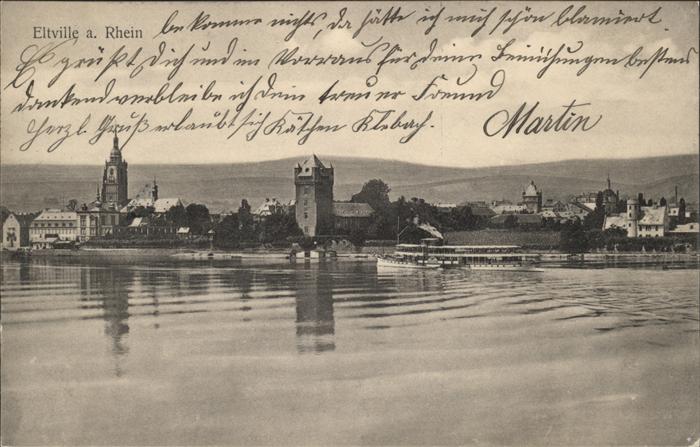 Eltville a. Rhein
bekomme nichts, da hätte ich mich schön blamiert.
Es grüßt Dich und im Vorraus für deine Bemühungen bestens
dankend verbleibe ich dein treuer Freund
Martin
Herzl. Gruß erlaubt sich Käthen Klebach.